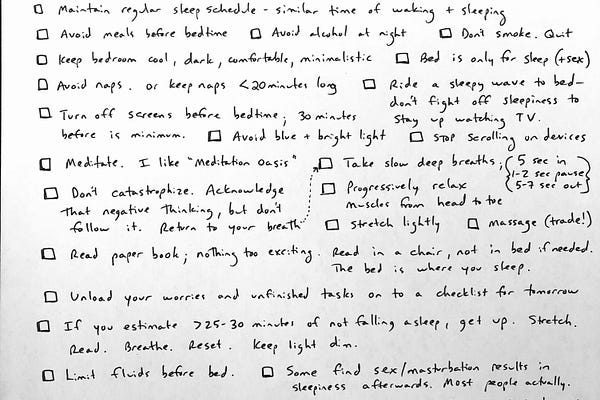 Maintain regular sleep schedule - similar time of waking + sleeping
Avoid meals before bedtime Avoid alcohol at night Don't smoke. Quit
Keep bedroom cool, dark, comfortable, minimalistic Bed is only for sleep (+sex)
Avoid naps. or keep naps <20 minutes long Ride a sleepy wave to bed-
don't fight off sleepiness to
stay up watching TV.
Turn off screens before bedtime; 30 minutes
before is minimum. Avoid blue + bright light Stop scrolling on devices
Meditate. I like "Meditation Oasis" Take slow deep breaths; (5 sec in
1-2 sec pause
5-7 sec out)
Don't catastrophize. Acknowledge
that negative thinking, but don't
follow it. Return to your breath
Progressively relax
muscles from head to toe
Stretch lightly massage (trade!)
Read paper book; nothing too exciting. Read in a chair, not in bed if needed.
The bed is where you sleep.
Unload your worries and unfinished tasks on to a checklist for tomorrow
If you estimate >25-30 minutes of not falling asleep, get up. Stretch.
Read. Breathe. Reset. Keep light dim.
Limit fluids before bed. Some find sex/masturbation results in
sleepiness afterwards. Most people actually.